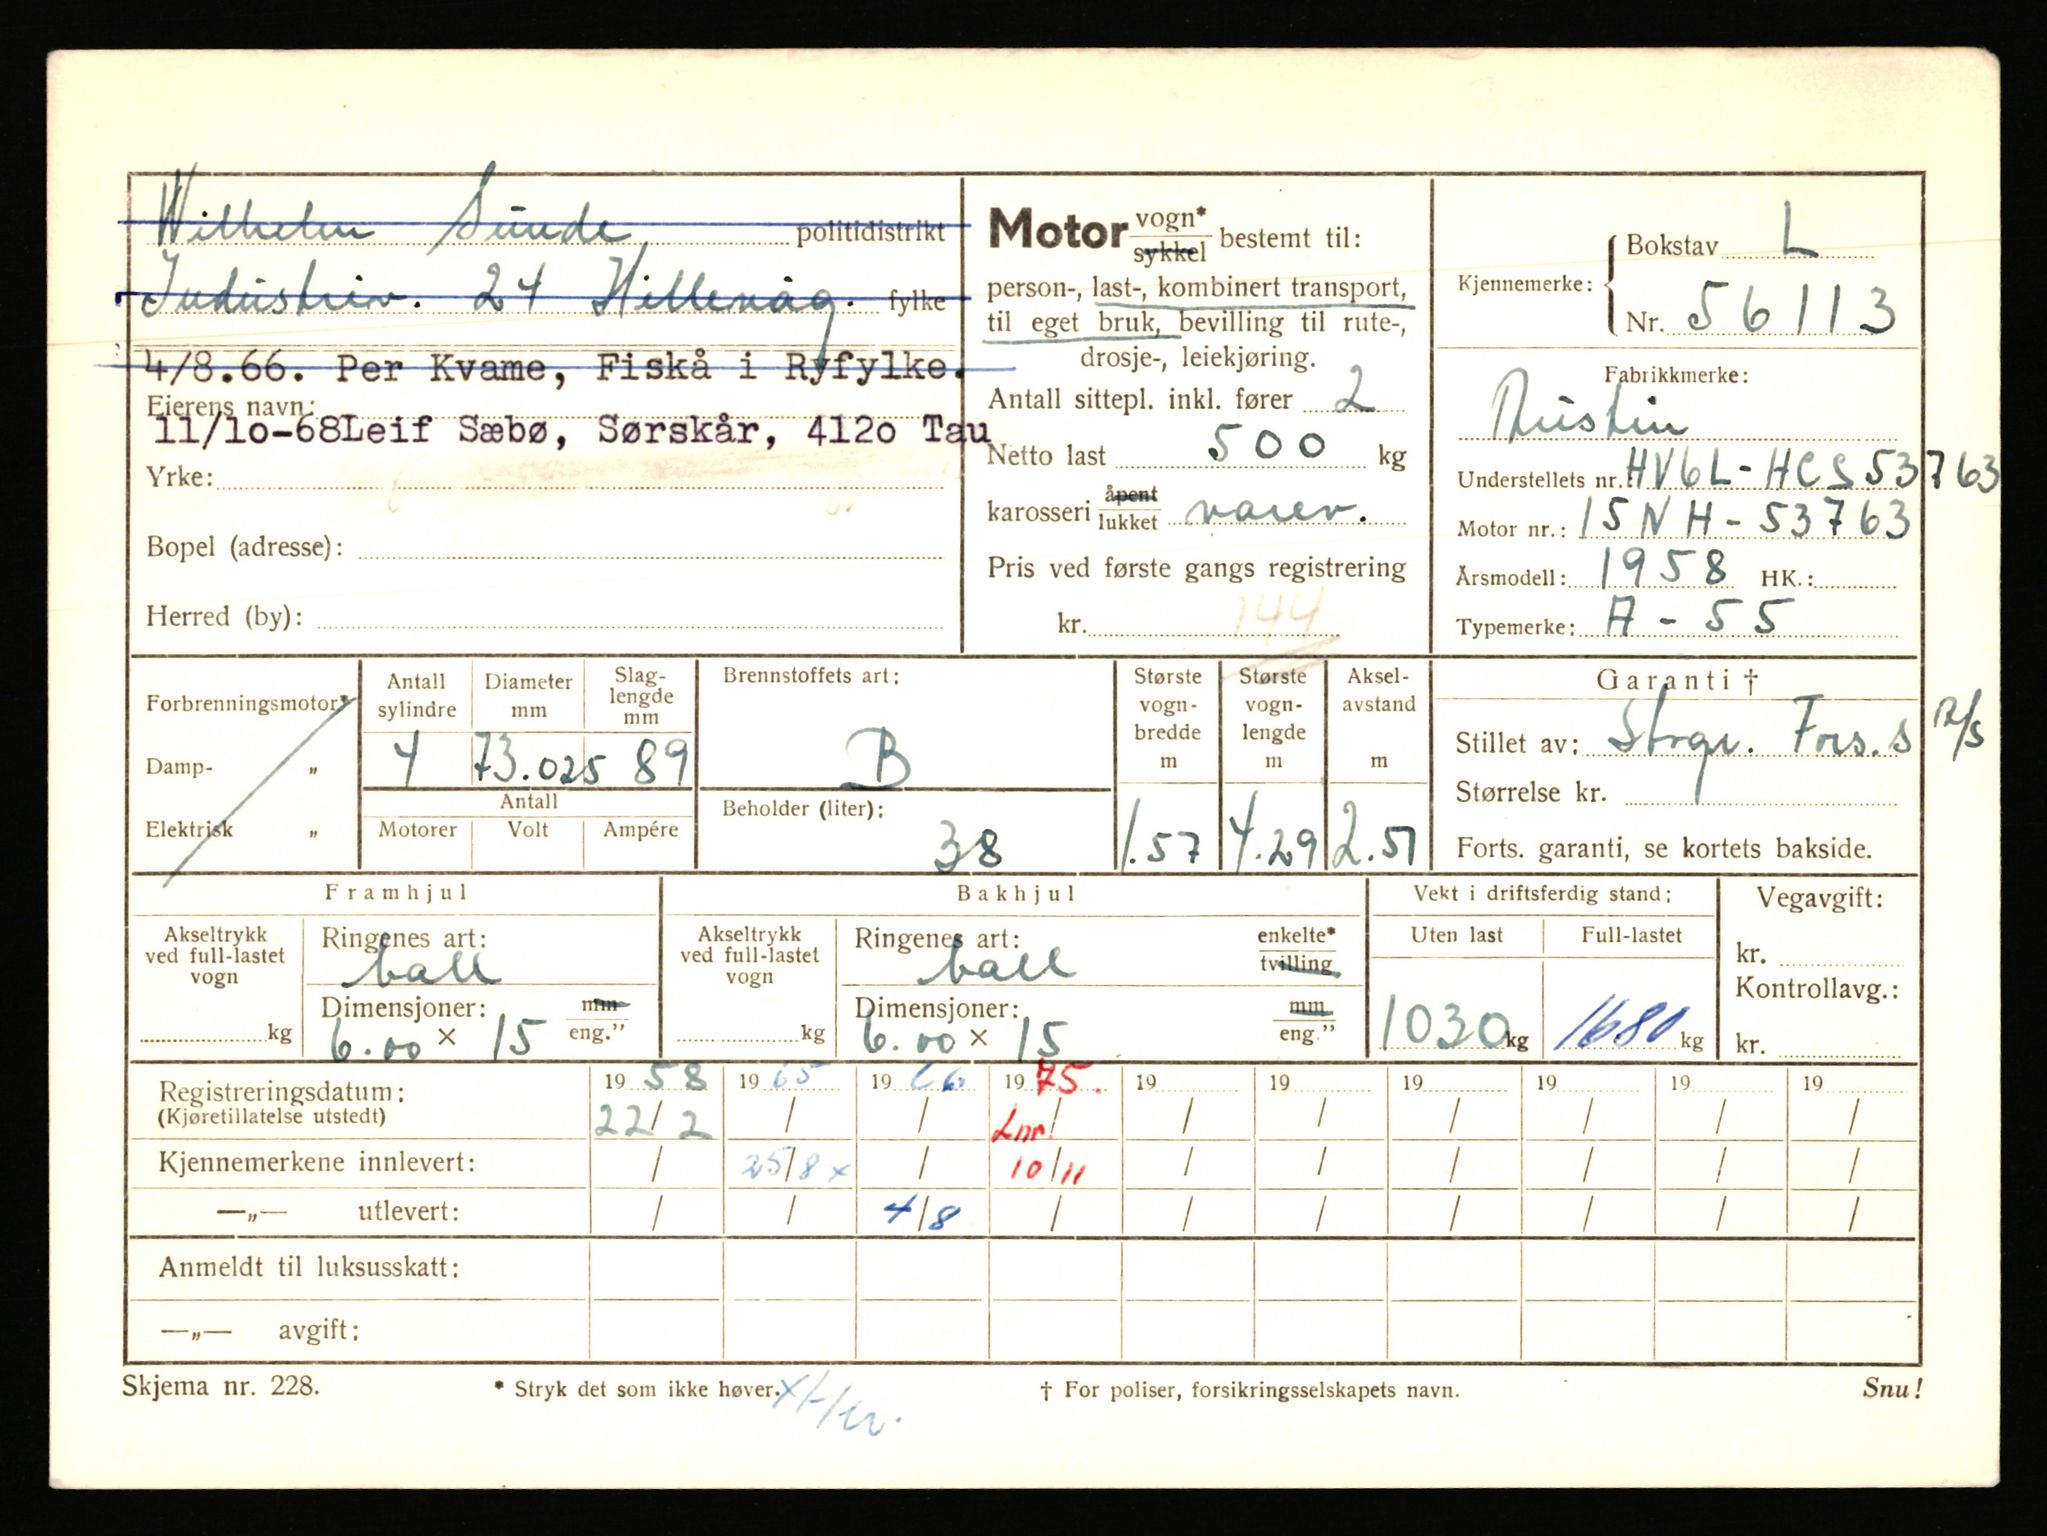 Wilhelm Sunde politidistrikt
Industriv. 24 Hillevåg. fylke
4/8.66. Per Kvame, Fiskå i Ryfylke.
Eierens navn:
11/10-68 Leif Sæbø, Sørskår, 4120 Tau
Yrke:
Bopel (adresse):
Herred (by):
Motor vogn* sykkel bestemt til:
person-, last-, kombinert transport,
til eget bruk, bevilling til rute-,
drosje-, leiekjøring.
Antall sittepl. inkl. fører 2
Netto last 500 kg
karosseri åpent lukket varev.
Pris ved første gangs registrering
kr. 144
Kjennemerke: Bokstav L
Nr. 56113
Fabrikkmerke:
Austin
Understellets nr. HV6L-HCS53763
Motor nr.: 15NH-53763
Årsmodell: 1958 HK.:
Typemerke: A-55
Forbrenningsmotor*
Damp- „
Elektrisk „
Antall sylindre Diameter mm Slag-lengde mm
4 73.025 89
Antall
Motorer Volt Ampére
Brennstoffets art:
B
Beholder (liter):
38
Største vogn-bredde m
1.57
Største vogn-lengde m
4.29
Aksel-avstand m
2.51
Garanti †
Stillet av: Storgr. Fors.s R/S
Størrelse kr.
Forts. garanti, se kortets bakside.
Framhjul
Akseltrykk ved full-lastet vogn
kg
Ringenes art:
ball
Dimensjoner: mm eng.”
6.00 × 15
Bakhjul
Akseltrykk ved full-lastet vogn
kg
Ringenes art: enkelte* tvilling
ball
Dimensjoner: mm eng.”
6.00 × 15
Vekt i driftsferdig stand:
Uten last Full-lastet
1030 kg 1680 kg
Vegavgift:
kr.
Kontrollavg.:
kr.
Registreringsdatum: 19 58 19 65 19 66 19 75. 19 19 19 19 19 19
(Kjøretillatelse utstedt) 22/2 / / Lnr. / / / / / / /
Kjennemerkene innlevert: / 25/8 x / 10/11 / / / / / /
—„— utlevert: / / 4/8 / / / / / / /
Anmeldt til luksusskatt:
—„— avgift:
Skjema nr. 228. * Stryk det som ikke høver. † For poliser, forsikringsselskapets navn. Snu!